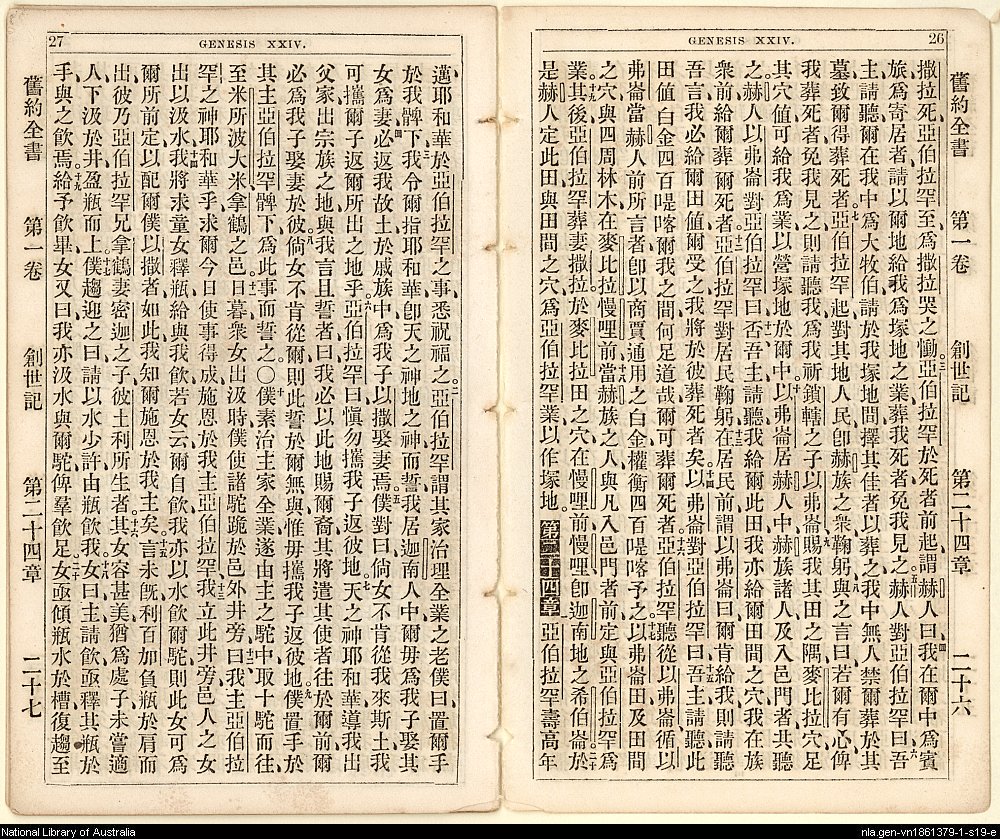 26
GENESIS XXIV.
舊約全書 第一卷 創世記 第二十四章 二十六
撒拉死、亞伯拉罕至、爲撒拉哭之慟。三亞伯拉罕於死者前起、謂赫人曰、四我在爾中爲賓
旅、爲寄居者、請以爾地給我爲塚地之業、葬我死者、免我見之。五赫人對亞伯拉罕曰、六吾
主、請聽、爾在我中爲大牧伯、請於我塚地間、擇其佳者以葬之、我中無人禁爾葬於其
墓、致爾得葬死者。七亞伯拉罕起、對其地人民、卽赫族之衆、鞠躬、八與之言曰、若爾有心、俾
我葬死者、免我見之、則請聽我、爲我祈鎖轄之子以弗崙、九賜我其田之隅、麥比拉穴、足
其穴値、可給我爲業、以營塚地於爾中。十以弗崙居赫人中、赫族諸人及入邑門者、共聽
之、赫人以弗崙對亞伯拉罕曰、十一否、吾主請聽、我給爾此田、我亦給爾田間之穴、我在族
衆前給爾、葬爾死者。十二亞伯拉罕對居民鞠躬、十三在居民前、謂以弗崙曰、爾肯給我、則請聽
吾言、我必給爾田値、爾受之、我將於彼葬死者矣。十四以弗崙對亞伯拉罕曰、十五吾主請聽、此
田値白金四百㖷喀、爾我之間何足道哉、爾可葬爾死者。十六亞伯拉罕聽從以弗崙、循以
弗崙當赫人前所言者、卽以商賈通用之白金、權衡四百㖷喀予之。十七以弗崙田及田間
之穴、與四周林木、在麥比拉慢哩前、十八當赫族之人、與凡入邑門者前、定與亞伯拉罕爲
業。十九其後亞伯拉罕葬妻撒拉於麥比拉田之穴、在慢哩前、慢哩卽迦南地之希伯崙。二十於
是赫人定此田與田間之穴、爲亞伯拉罕業、以作塚地。第二十四章 亞伯拉罕壽高年
27
GENESIS XXIV.
邁、耶和華於亞伯拉罕之事、悉祝福之。二亞伯拉罕謂其家治理全業之老僕曰、置爾手
於我髀下、三我令爾指耶和華、卽天之神地之神而誓、我居迦南人中、爾毋爲我子娶其
女爲妻、四必返我故土、於戚族中爲我子以撒娶妻焉。五僕對曰、倘女不肯從我來斯土、我
可攜爾子返爾所出之地乎、六亞伯拉罕曰、愼勿攜我子返彼地、七天之神耶和華、導我出
父家、出宗族之地、與我言且誓者曰、我必以此地賜爾裔、其將遣其使者往於爾前、爾
必爲我子娶妻於彼、八倘女不肯從爾、則此誓於爾無與、惟毋攜我子返彼地。九僕置手於
其主亞伯拉罕髀下、爲此事而誓之。〇十僕素治主家全業、遂由主之駝中、取十駝而往、
至米所波大米拿鶴之邑、十一日暮衆女出汲時、僕使諸駝跪於邑外井旁、十二曰、我主亞伯拉
罕之神耶和華乎、求爾今日使事得成、施恩於我主亞伯拉罕、十三我立此井旁、邑人之女
出以汲水、十四我將求童女釋瓶給與我飮、若女云、爾自飮、我亦以水飮爾駝、則此女可爲
爾所前定、以配爾僕以撒者、如此我知爾施恩於我主矣。十五言未旣、利百加負瓶於肩而
出、彼乃亞伯拉罕兄拿鶴妻密迦之子、彼土利所生者、十六其女容甚美、猶爲處子、未嘗適
人、下汲於井、盈瓶而上、十七僕趨迎之曰、請以水少許由瓶飮我、十八女曰、主請飮、亟釋其瓶於
手、與之飮焉。十九給予飮畢、女又曰、我亦汲水與爾駝、俾羣飮足、二十女亟傾瓶水於槽、復趨至
舊約全書 第一卷 創世記 第二十四章 二十七
National Library of Australia
nla.gen-vn1861379-1-s19-e